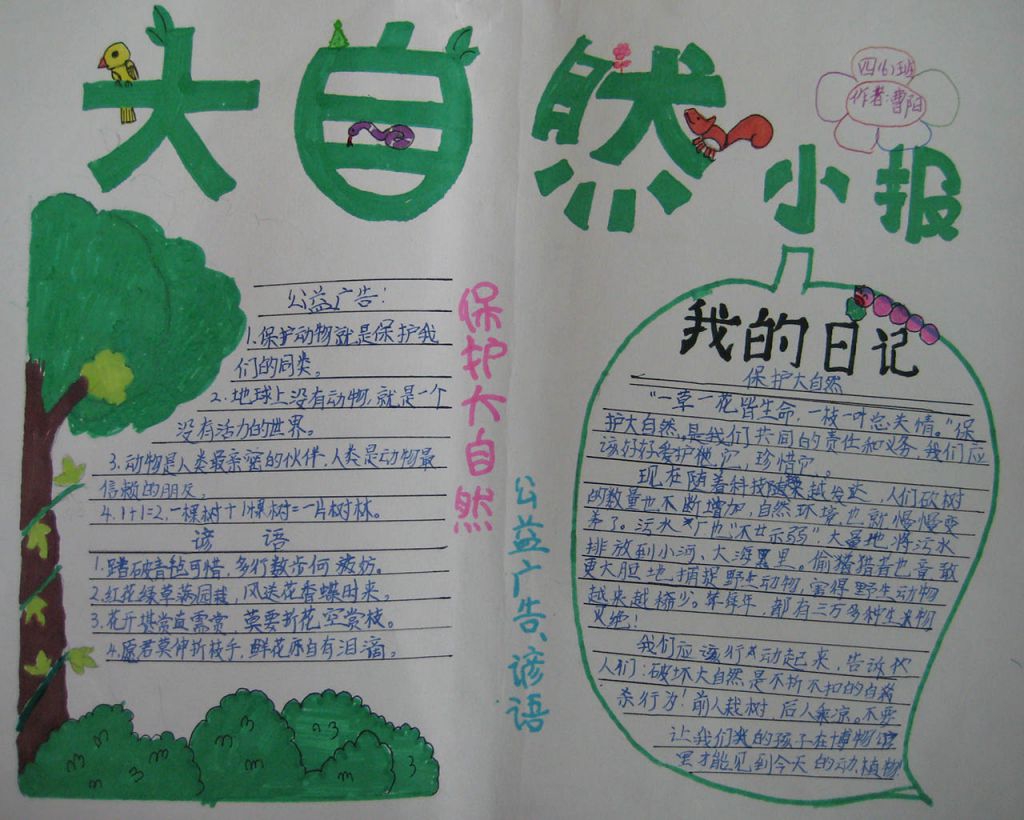 大自然小报
四(6)班
作者:曹阳
公益广告!
1.保护动物就是保护我
们的同类。
2.地球上没有动物,就是一个
没有活力的世界。
3.动物是人类最亲密的伙伴,人类是动物最
信赖的朋友。
4.1+1=2,一棵树+1棵树=一片树林。
谚语
1.踏破青毡可惜,多行数步何妨。
2.红花绿草满园栽,风送花香蝶时来。
3.花开堪赏直需赏,莫要折花空赏枝。
4.愿君莫伸折枝手,鲜花亦自有泪滴。
保护大自然
公益广告、谚语
我的日记
保护大自然
“一草一花皆生命,一枝一叶总关情。”保
护大自然,是我们共同的责任和义务,我们应
该好好爱护它,珍惜它。
现在随着科技越发达,人们砍树
的数量也不断增加,自然环境也就慢慢变
差了。污水厂也“不甘示弱”大量地将污水
排放到小河、大海里。偷猎者也竟敢
更大胆地捕捉野生动物,害得野生动物
越来越稀少。年年,都有三万多种生物
灭绝!
我们应该行动起来,告诉
人们:破坏大自然是不折不扣的自
杀行为!前人栽树,后人乘凉。不要
让我们的孩子在博物馆
里才能见到今天的动植物